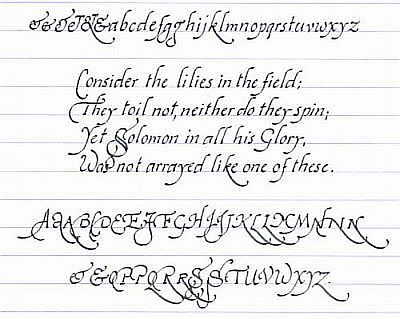 & & & & & & abcdefgghijklmnopqrstuvwxyz
Consider the lilies in the field;
They toil not, neither do they spin;
Yet Solomon in all his Glory,
Was not arrayed like one of these.
AAABCDEEFFGHHIJKLLKMNNN
& & QPPQRRSSSTUVWXYZ.